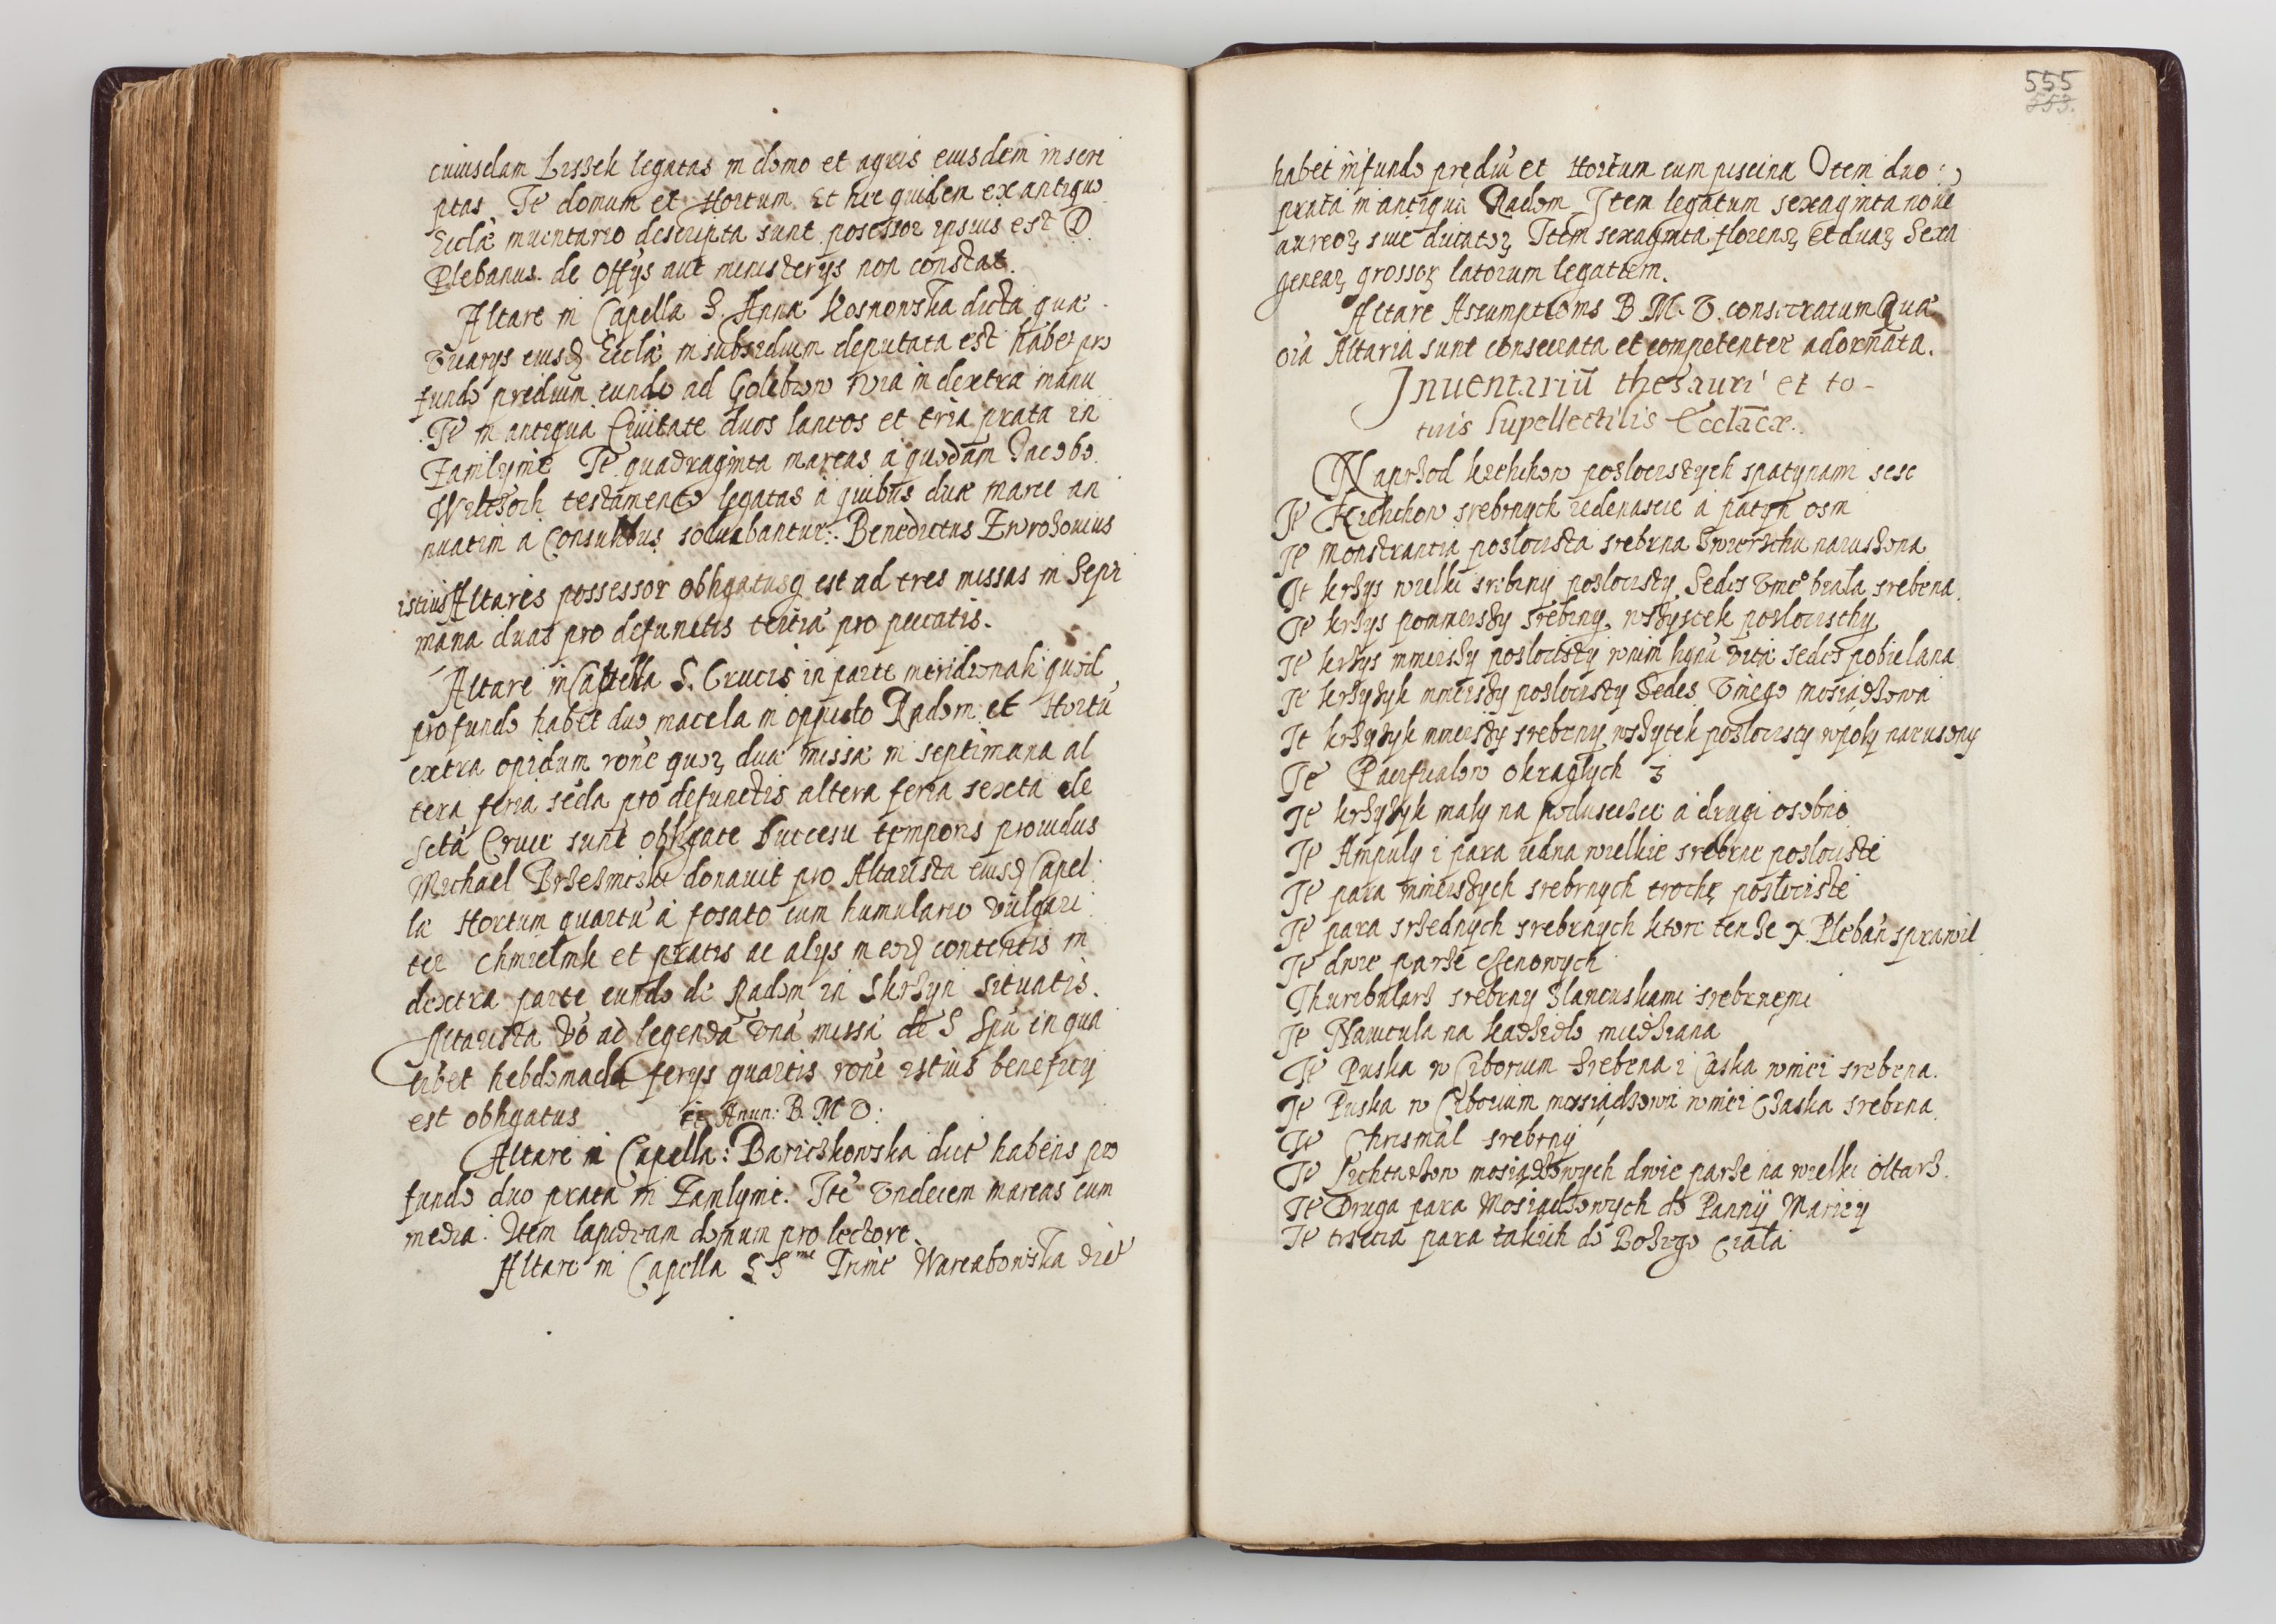 cuiusdam Lissek legatas in domo et agris eiusdem inscri
ptas. Ite domum et Hortum. Et hec quidem ex antiquo
Ecclæ inuentario descripta sunt posessor ipsius est D
Plebanus. de Offys aut ministerys non constat.
Altare in Capella S. Anna Kosnowska dicta qua
Vicarys eiusq Ecclæ in subsidium deputata est habet pro
fundo predium eundo ad Golebiow via in dextra manu
Ite in antiqua Ciuitate duos laneos et tria prata in
Zamlynie Ite quadraginta marcas a quodam Jacobo
testamento legatas a quibus dua marce an
nuatim a Consulibus soluebantur. Benedictus
istius Altaris possessor obligatusq est ad tres missas in Septi
mana duas pro defunctis tertia pro peccatis.
Altare in Capella S. Crucis in parte meridionali quod
pro fundo habet duo macela in oppido Radom et Hortu
extra opidum rone quoz dua missa in septimana al
tera feria secda pro defunctis altera feria sexta de
Scta Cruce sunt obligate Succesu temporis prouidus
Michael donauit pro Altarista eiusq Capel
la Hortum quartu a fosato cum humulario vulgari
ter chmielnik et pratis ac alys in eoq contentis in
dextra parte eundo de Radom in Skrzyn situatis.
Altarista Vo ad legenda vna missa de S Spu in qua
libet hebdomada ferys quartis rone istius beneficy
est obligatus et Anun: B. M V:
Altare in Capella: Bariczkowska dict habens pro
fundo duo prata in Zamlynie. Ite vndecim marcas cum
media. Item lapideam domum pro lectore.
Altare in Capella S S me Trinie dict
555
553.
habet in fundo prediu et Hortum cum piscina Item duo
prata in antiqua Radom Item legatum sexaginta noue
aureoz siue ducatoz Item sexaginta florenoz et duaz Sexa
genaz grossoz latorum legatem.
Altare Assumptionis B. M. V. consecratum Qua
oia Altaria sunt consecrata et competenter adornata.
Inuentariu thesauri et to-
tius Supellectilis Ecclicæ.
Naprzod kielichow pozlocistych spatynami sesc
Ite Kielichow srebrnych iedenascie a patyn osm
Ite Monstrantia pozlocista srebrna zwierzchu naruszona
It krzys wielki srebrny pozlocisty. Sedes v nieo biala srebrna.
Ite krzys pomnieiszy srebrny, wszystek pozlocisthy
Ite krzys mnieiszy pozlocisty w nim lignu vita sedes pobielana
Ite krzyzyk mnieiszy pozlocisty Sedes v niego mosiądzowa
It krzyzyk mnieiszy srebrny wszytek pozlocisty wpoly narusony
Ite Pacifikalow okraglych 3
Ite krzyzyk maly na podusecce a drugi osobno
Ite Ampuly i para iedna wielkie srebrne pozlociste
Ite para mnieiszych srebrnych trochę pozlociste
Ite para srzednych srebrnych ktore tenze X Pleban sprawil
Ite dwie parze cÿnowych
Thuribularz srebrny Slancuskami srebrnemi
Ite Nauicula na kadzidlo miedziana
Ite Puska w Ciborium srebrna i Caska w niei srebrna.
Ite Puska w Ciborium mosiądzowa w niei Czaska srebrna.
Ite Chrismal srebrny
Ite Lichtarzow mosiądzowych dwie parze na wielki oltarz.
Ite Druga para Mosiądzowych do Panny Mariey
Ite trzecia para takich do Bozego Ciala